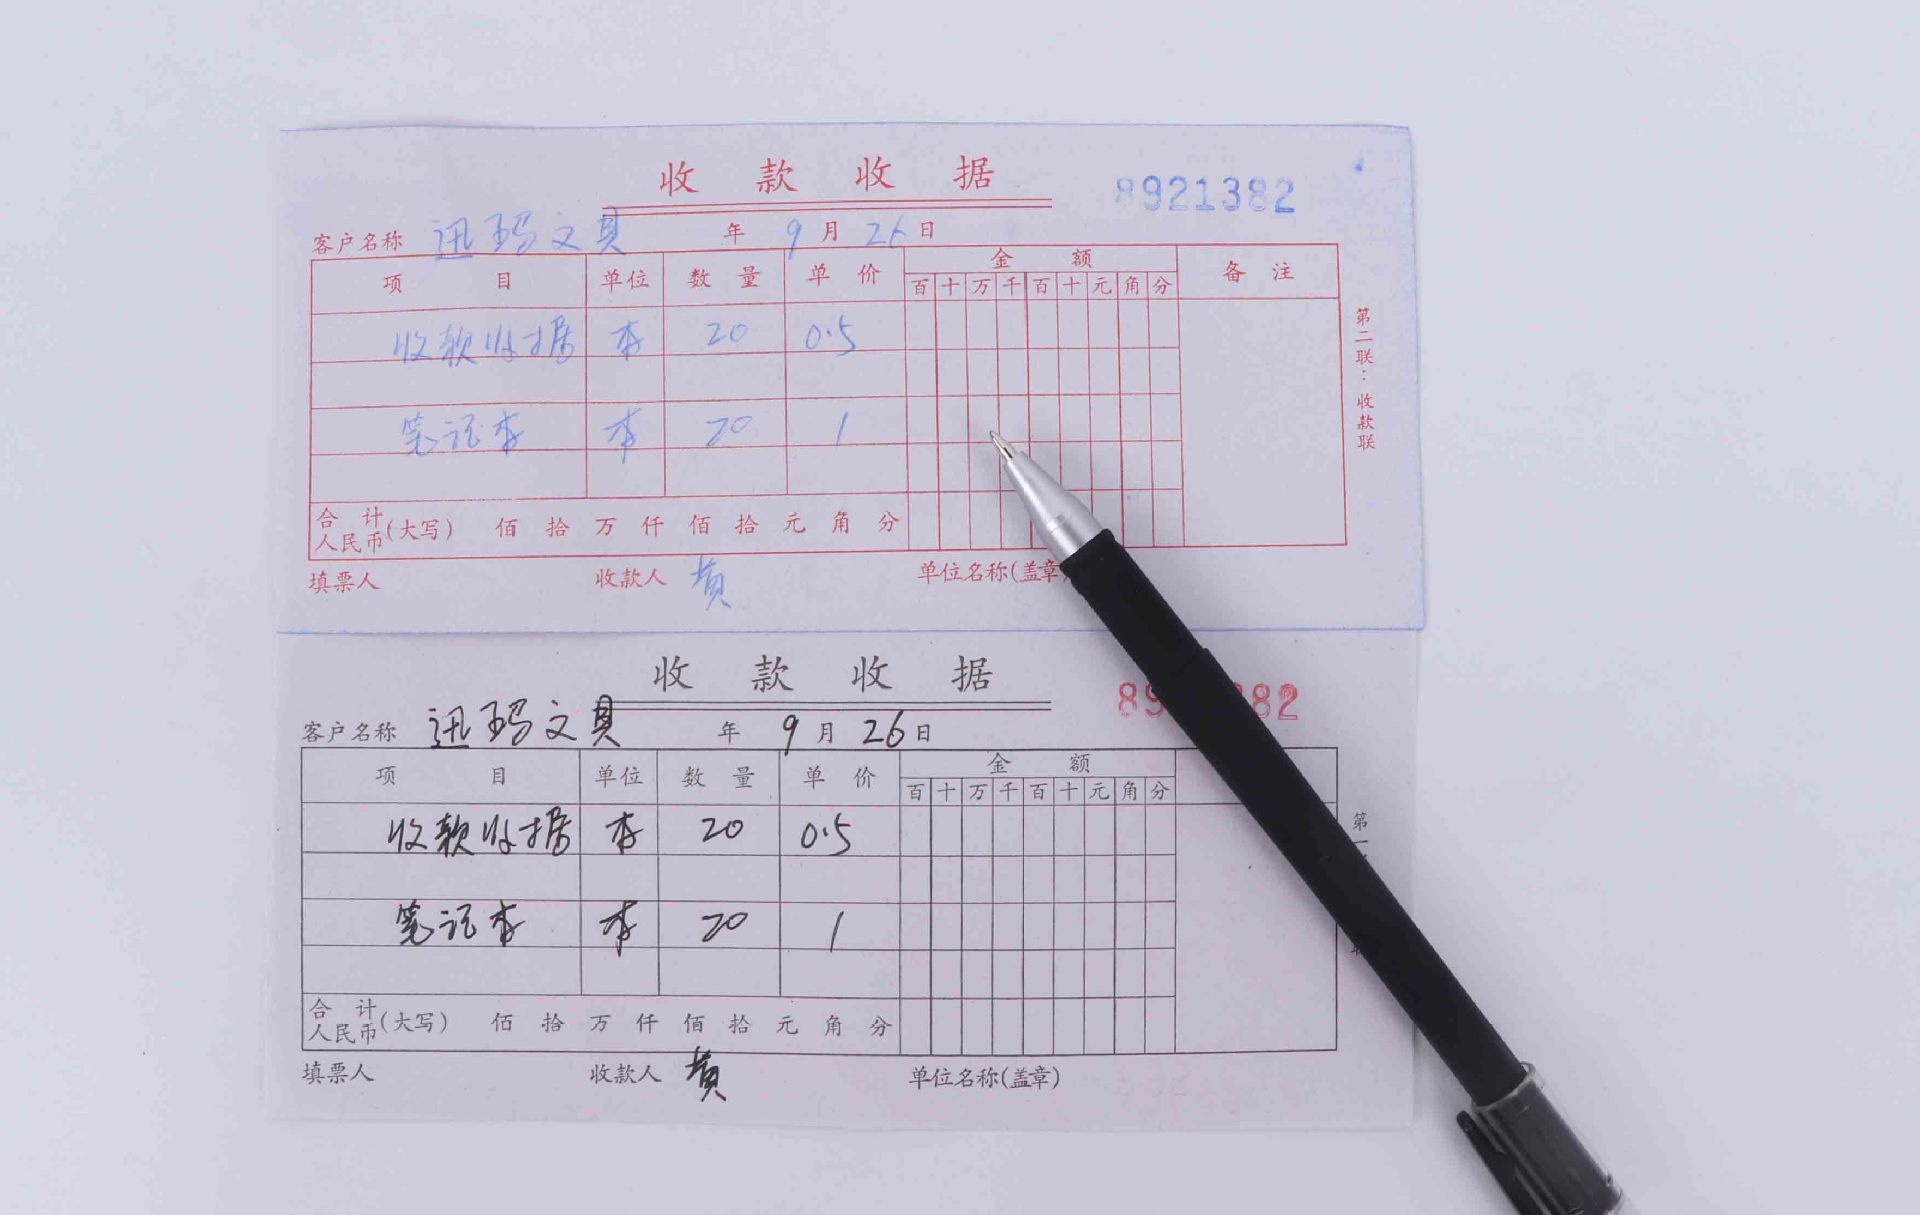 收款收据
8921382
客户名称 迅玛文具 年 9 月 26 日
项目 单位 数量 单价 金额 备注
百 十 万 千 百 十 元 角 分
收款收据 本 20 0.5
笔记本 本 20 1
合计人民币(大写) 佰 拾 万 仟 佰 拾 元 角 分
填票人 收款人 黄 单位名称(盖章)
第二联:收款联
收款收据
89 382
客户名称 迅玛文具 年 9 月 26 日
项目 单位 数量 单价 金额
百 十 万 千 百 十 元 角 分
收款收据 本 20 0.5
笔记本 本 20 1
合计人民币(大写) 佰 拾 万 仟 佰 拾 元 角 分
填票人 收款人 黄 单位名称(盖章)
第